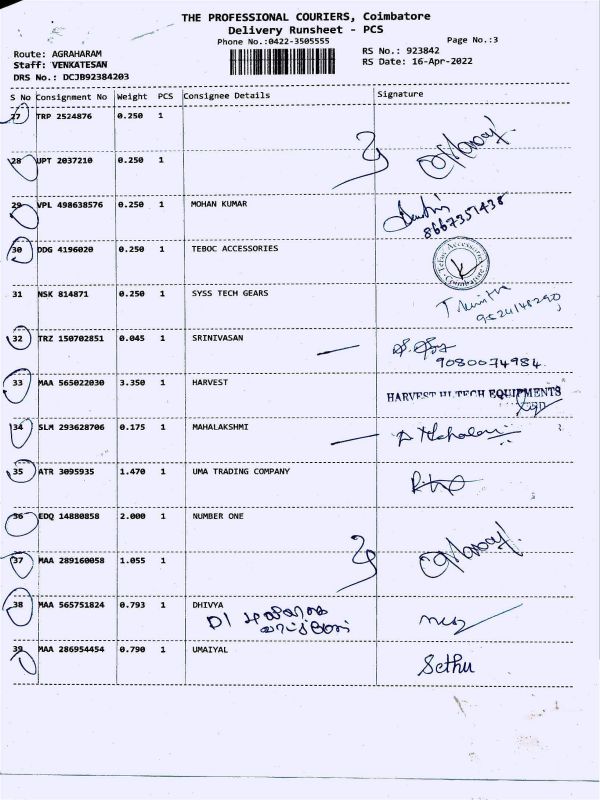 THE PROFESSIONAL COURIERS, Coimbatore
Delivery Runsheet - PCS
Phone No.:0422-3505555
Page No.:3
Route: AGRAHARAM
Staff: VENKATESAN
DRS No.: DCJB92384203
RS No.: 923842
RS Date: 16-Apr-2022
S No Consignment No Weight PCS Consignee Details Signature
27 TRP 2524876 0.250 1
28 UPT 2037210 0.250 1
29 VPL 498638576 0.250 1 MOHAN KUMAR
8667357438
30 DDG 4196020 0.250 1 TEBOC ACCESSORIES
Teboc Accessories Coimbatore
31 NSK 814871 0.250 1 SYSS TECH GEARS
9524148290
32 TRZ 150702851 0.045 1 SRINIVASAN
9080074984
33 MAA 565022030 3.350 1 HARVEST HARVEST HI TECH EQUIPMENTS
34 SLM 293628706 0.175 1 MAHALAKSHMI
35 ATR 3095935 1.470 1 UMA TRADING COMPANY
36 EDQ 14880858 2.000 1 NUMBER ONE
37 MAA 289160058 1.055 1
38 MAA 565751824 0.793 1 DHIVYA
39 MAA 286954454 0.790 1 UMAIYAL Sethu